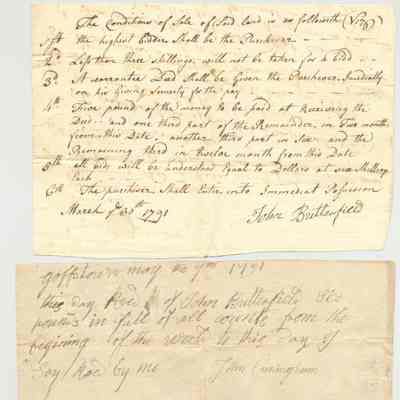 The Conditions of Sale of Said land is as followeth (Viz)
1st the highest bidder Shall be the Purcheser
2d Less than three shillings will not be taken for a bidd
3d A warrantee Deed Shall be Given the Purcheser Imediatly
on his Giving Surety for the pay
4th Five pound of the money to be paid at Receiving the
Deed and one third part of the Remainder in Two months
from this Date another third part in Six and the
Remaining third in twelve month from this Date
5th all bids will be understood Equal to Dollars at six Shillings
Each
6th The purchiser Shall Enter into Immediat Posession
March ye 30th 1791 John Butterfield
goffstown may 1791
this day Rcd of John Butterfield
pounds in full of all from the
begining of the world to this Day
Say Rcd by me John Cuningham